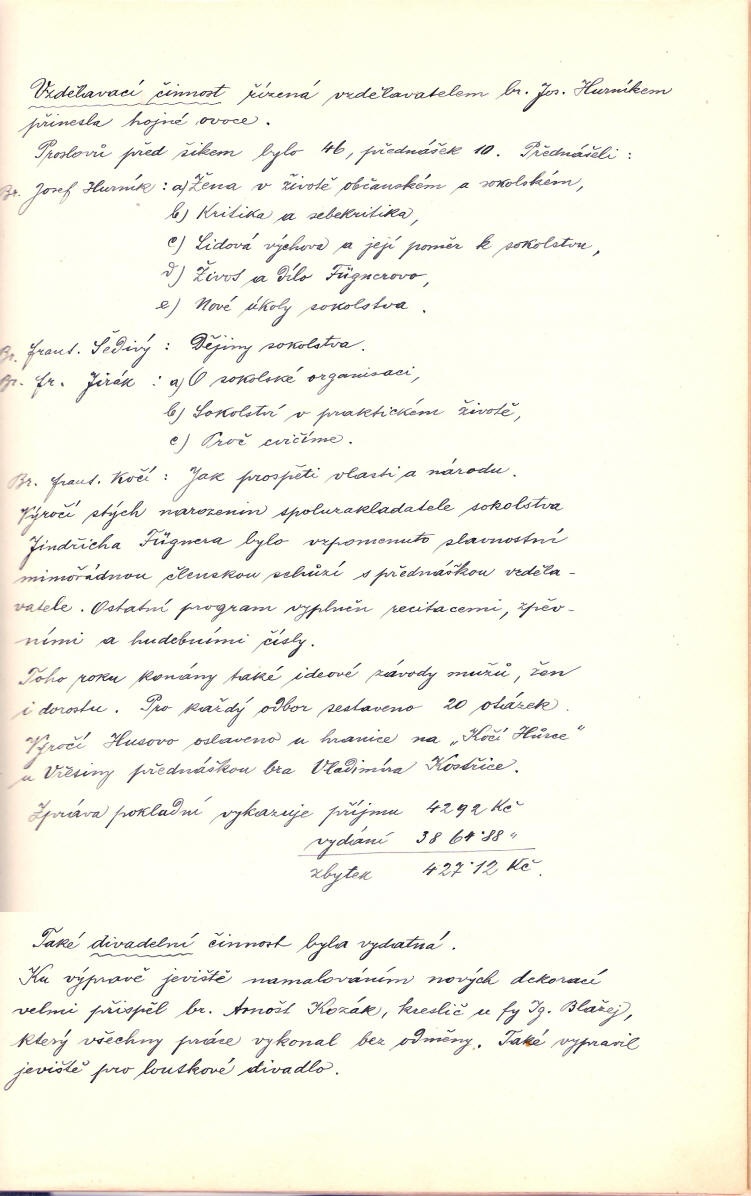 Vzdělavací činnost řízená vzdělavatelem br. Jos. Hurníkem
přinesla hojné ovoce.
Proslovů před šikem bylo 46, přednášek 10. Přednášeli:
Br. Josef Hurník: a) Žena v životě občanském a sokolském,
b) Kritika a sebekritika,
c) Lidová výchova a její poměr k sokolstvu,
d) Život a dílo Fügnerovo,
e) Nové úkoly sokolstva.
Br. Frant. Šedivý: Dějiny sokolstva.
Br. Fr. Jirák: a) O sokolské organisaci,
b) Sokolství v praktickém životě,
c) Proč cvičíme.
Br. Frant. Kočí: Jak prospěti vlasti a národu.
Výročí stých narozenin spoluzakladatele sokolstva
Jindřicha Fügnera bylo vzpomenuto slavnostní
mimořádnou členskou schůzí s přednáškou vzděla-
vatele. Ostatní program vyplněn recitacemi, zpěv-
ními a hudebními čísly.
Toho roku konány také ideové závody mužů, žen
i dorostu. Pro každý odbor sestaveno 20 otázek.
Výročí Husovo oslaveno u hranice na „Kočí Hůrce"
u Vřesiny přednáškou bra Vladimíra Kostřice.
Zpráva pokladní vykazuje příjmu 4292 Kč
vydání 3864·88 "
zbytek 427·12 Kč.
Také divadelní činnost byla vydatná.
Ku výpravě jeviště namalováním nových dekorací
velmi přispěl br. Arnošt Kozák, kreslič u fy Ig. Blažej,
který všechny práce vykonal bez odměny. Také vypravil
jeviště pro loutkové divadlo.